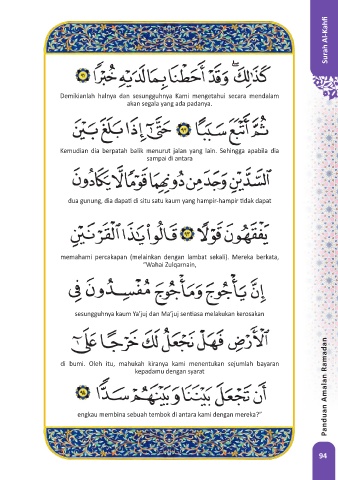 Surah Al-Kahfi
كَذَٰلِكَ ۖ وَقَدْ أَحَطْنَا بِمَا لَدَيْهِ خُبْرًا ۝٩١
Demikianlah halnya dan sesungguhnya Kami mengetahui secara mendalam
akan segala yang ada padanya.
ثُمَّ أَتْبَعَ سَبَبًا ۝٩٢ حَتَّىٰٓ إِذَا بَلَغَ بَيْنَ
Kemudian dia berpatah balik menurut jalan yang lain. Sehingga apabila dia
sampai di antara
ٱلسَّدَّيْنِ وَجَدَ مِن دُونِهِمَا قَوْمًا لَّا يَكَادُونَ
dua gunung, dia dapati di situ satu kaum yang hampir-hampir tidak dapat
يَفْقَهُونَ قَوْلًا ۝٩٣ قَالُوا۟ يَٰذَا ٱلْقَرْنَيْنِ
memahami percakapan (melainkan dengan lambat sekali). Mereka berkata,
“Wahai Zulqarnain,
إِنَّ يَأْجُوجَ وَمَأْجُوجَ مُفْسِدُونَ فِى
sesungguhnya kaum Ya’juj dan Ma’juj sentiasa melakukan kerosakan
ٱلْأَرْضِ فَهَلْ نَجْعَلُ لَكَ خَرْجًا عَلَىٰٓ
di bumi. Oleh itu, mahukah kiranya kami menentukan sejumlah bayaran
kepadamu dengan syarat
أَن تَجْعَلَ بَيْنَنَا وَبَيْنَهُمْ سَدًّا ۝٩٤
engkau membina sebuah tembok di antara kami dengan mereka?”
Panduan Amalan Ramadan
94